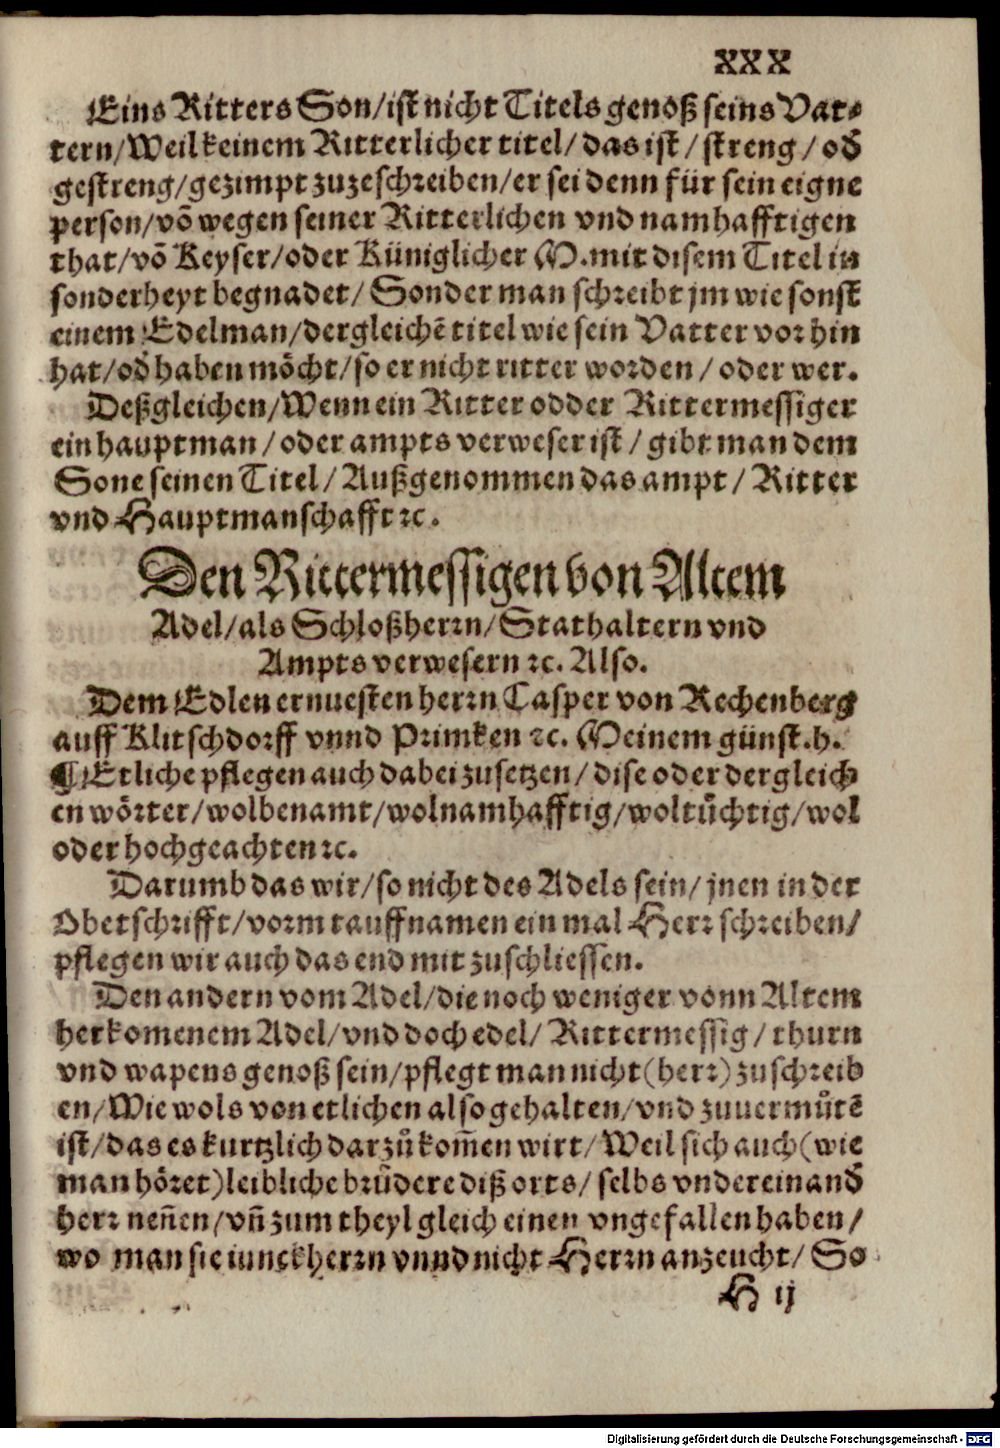 XXX
Eins Ritters Son/ist nicht Titels genoß seins Vat⸗
tern/Weil keinem Ritterlicher titel/das ist/streng/od̄
gestreng/gezimpt zuzeschreiben/er sei denn für sein eigne
person/vō wegen seiner Ritterlichen vnd namhafftigen
that/vō Keyser/oder Küniglicher M.mit disem Titel in
sonderheyt begnadet/Sonder man schreibt jm wie sonst
einem Edelman/dergleichē titel wie sein Vatter vorhin
hat/od̄ haben möcht/so er nicht ritter worden/oder wer.
Deßgleichen/Wenn ein Ritter odder Rittermessiger
ein hauptman/oder ampts verweser ist/gibt man dem
Sone seinen Titel/Außgenommen das ampt/Ritter
vnd Hauptmanschafft ꝛc.
Den Rittermessigen von Altem
Adel/als Schloßherrn/Stathaltern vnd
Ampts verwesern ꝛc. Also.
Dem Edlen ernuesten herrn Casper von Rechenberg
auff Klitschdorff vnnd Primken ꝛc. Meinem günst.h.
¶ Etliche pflegen auch dabei zusetzen/dise oder dergleich
en wörter/wolbenamt/wolnamhafftig/woltüchtig/wol
oder hochgeachten ꝛc.
Darumb das wir/so nicht des Adels sein/jnen in der
Oberschrifft/vorm tauffnamen ein mal Herr schreiben/
pflegen wir auch das end mit zuschliessen.
Den andern vom Adel/die noch weniger vonn Altem
herkomenem Adel/vnd doch edel/Rittermessig/thurn
vnd wapens genoß sein/pflegt man nicht(herr)zuschreib
en/Wie wols von etlichen also gehalten/vnd zuuermuͤtē
ist/das es kurtzlich darzuͦ kom̄en wirt/Weil sich auch(wie
man höret)leibliche bruͤdere diß orts/selbs vndereinand̄
herr nen̄en/vn̄ zum theyl gleich einen vngefallen haben/
wo man sie iunckherrn vnnd nicht Herrn anzeucht/So
H ij
Digitalisierung gefördert durch die Deutsche Forschungsgemeinschaft - DFG